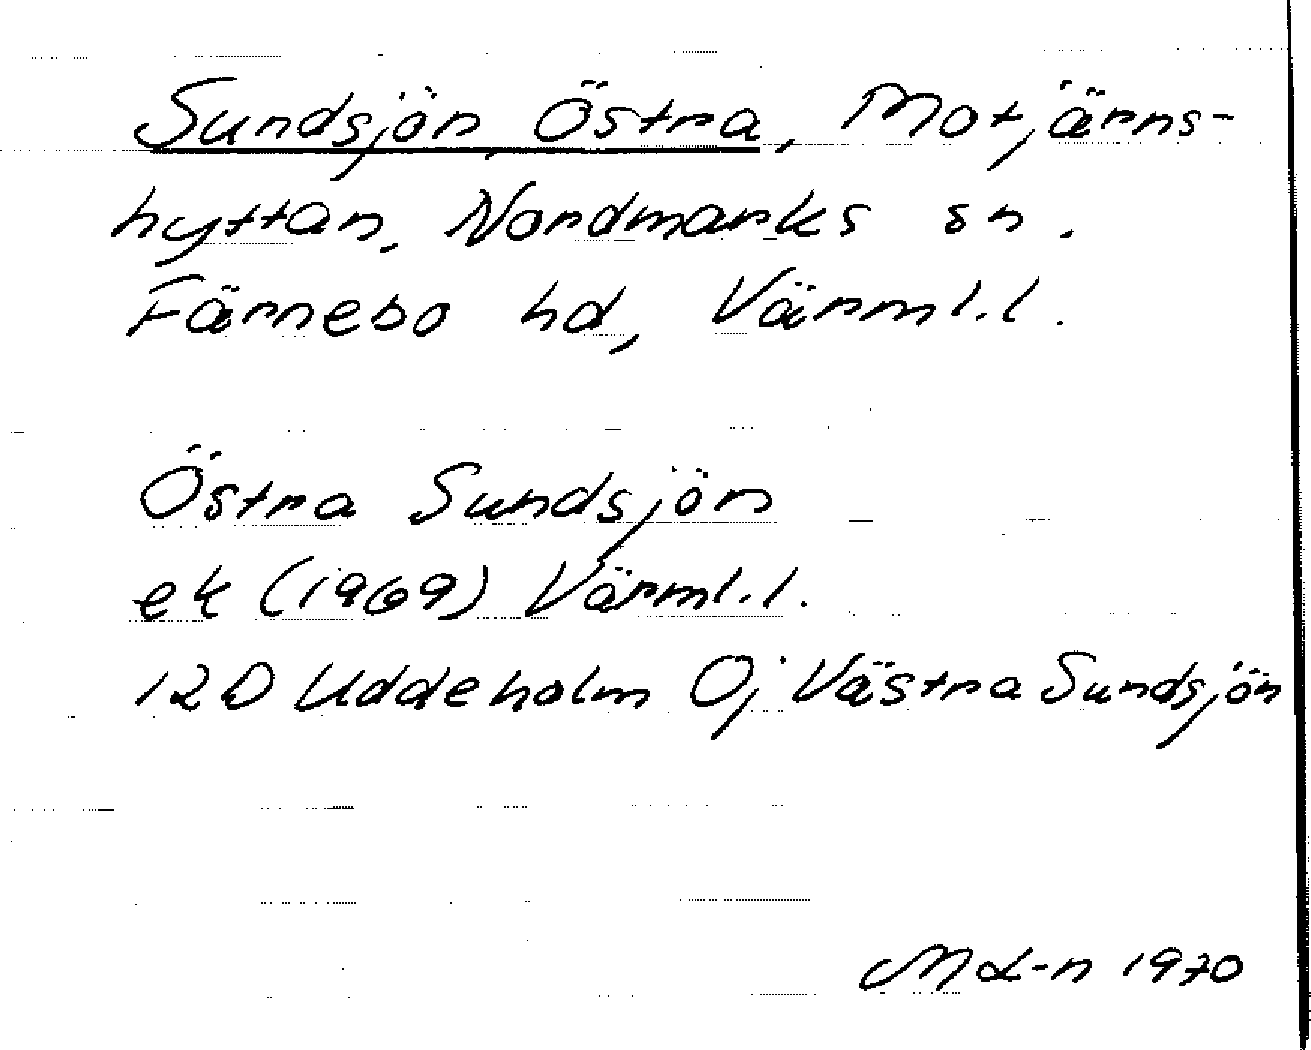 Sundsjön, Östra, Motjärns-
hyttan, Nordmarks sn.
Färnebo hd, Värml.l.
Östra Sundsjön
ek (1969) Värml.l.
12D Uddeholm Oj Västra Sundsjön
M L-n 1970